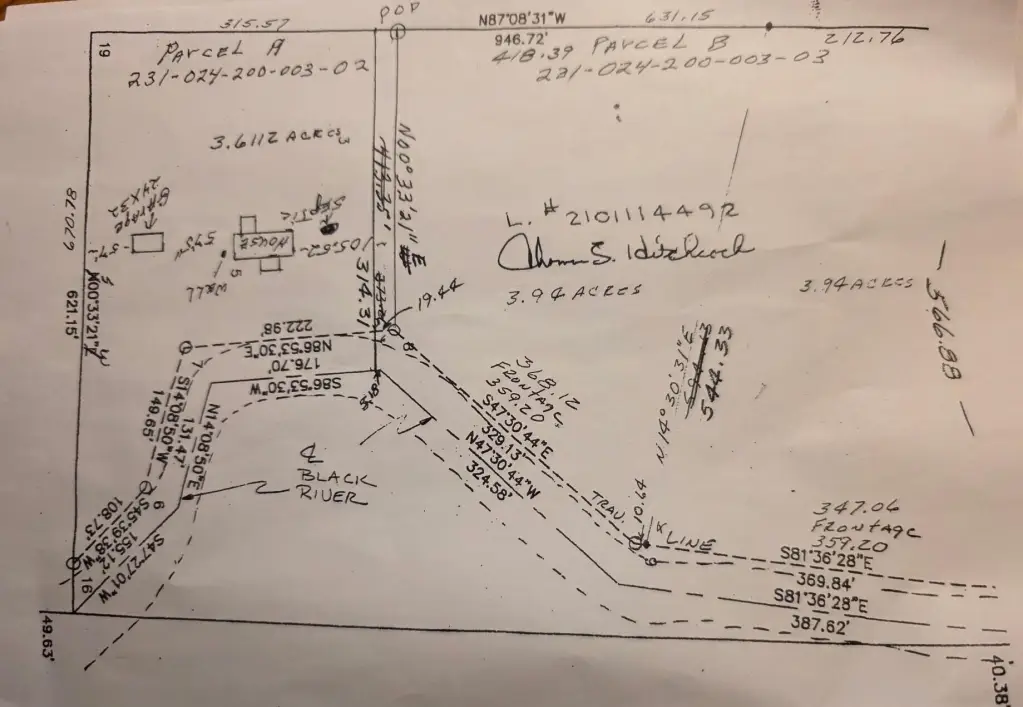 315.57
POD
N87°08'31"W
631.15
946.72'
418.39
212.76
19
PARCEL A
231-024-200-003-02
PARCEL B
231-024-200-003-03
3.6112 ACRES
N00°33'21"E
GARAGE
24X32
HOUSE
SEPTIC
WELL
57'
5
105.52
314.31
19.44
L. # 2101114492
Thomas S. Hitchcock
3.94 ACRES
3.94 ACRES
566.88
670.78
621.15'
N00°33'21"
222.98'
N86°53'30"E
176.70'
S86°53'30"W
7
8
S14°08'50"W
149.65'
131.47'
N14°08'50"E
6
S45°39'38"W
108.73'
155.12'
S47°27'01"W
16
49.63'
℄
BLACK
RIVER
368.12
FRONTAGE
359.20
S47°30'44"E
329.13'
N47°30'44"W
324.58'
N14°30'31"E
544.33
TRAV.
LINE
10.64
347.06
FRONTAGE
359.20
S81°36'28"E
369.84'
S81°36'28"E
387.62'
40.38'